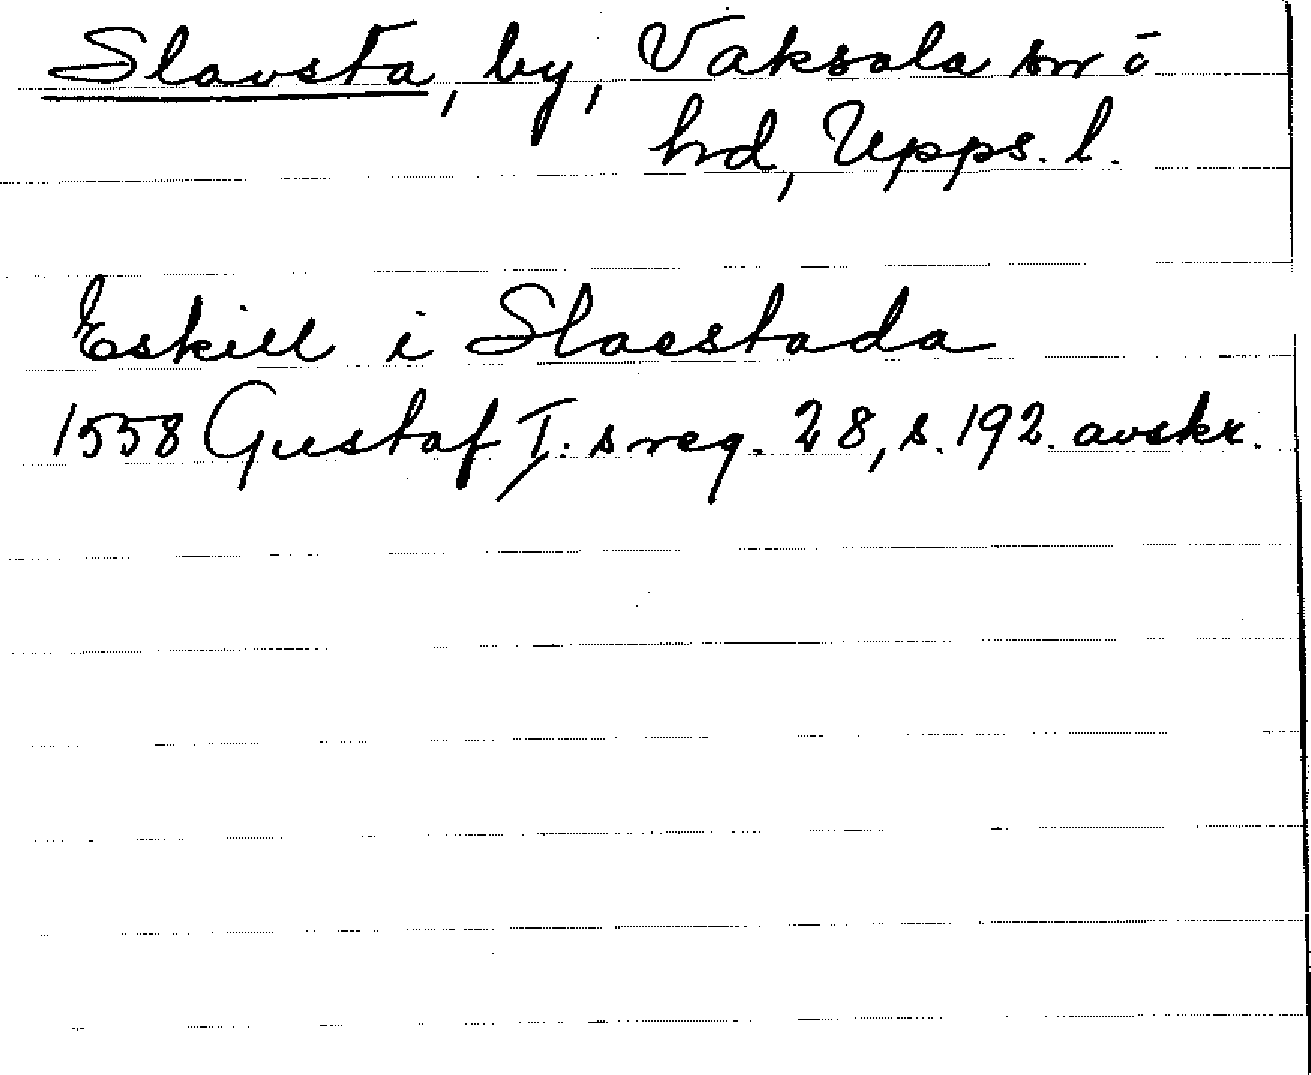 Slavsta, by, Vaksala sn o
hd, Upps. l.
Eskill i Slaestada
1558 Gustaf I:s reg. 28, s. 192. avskr.